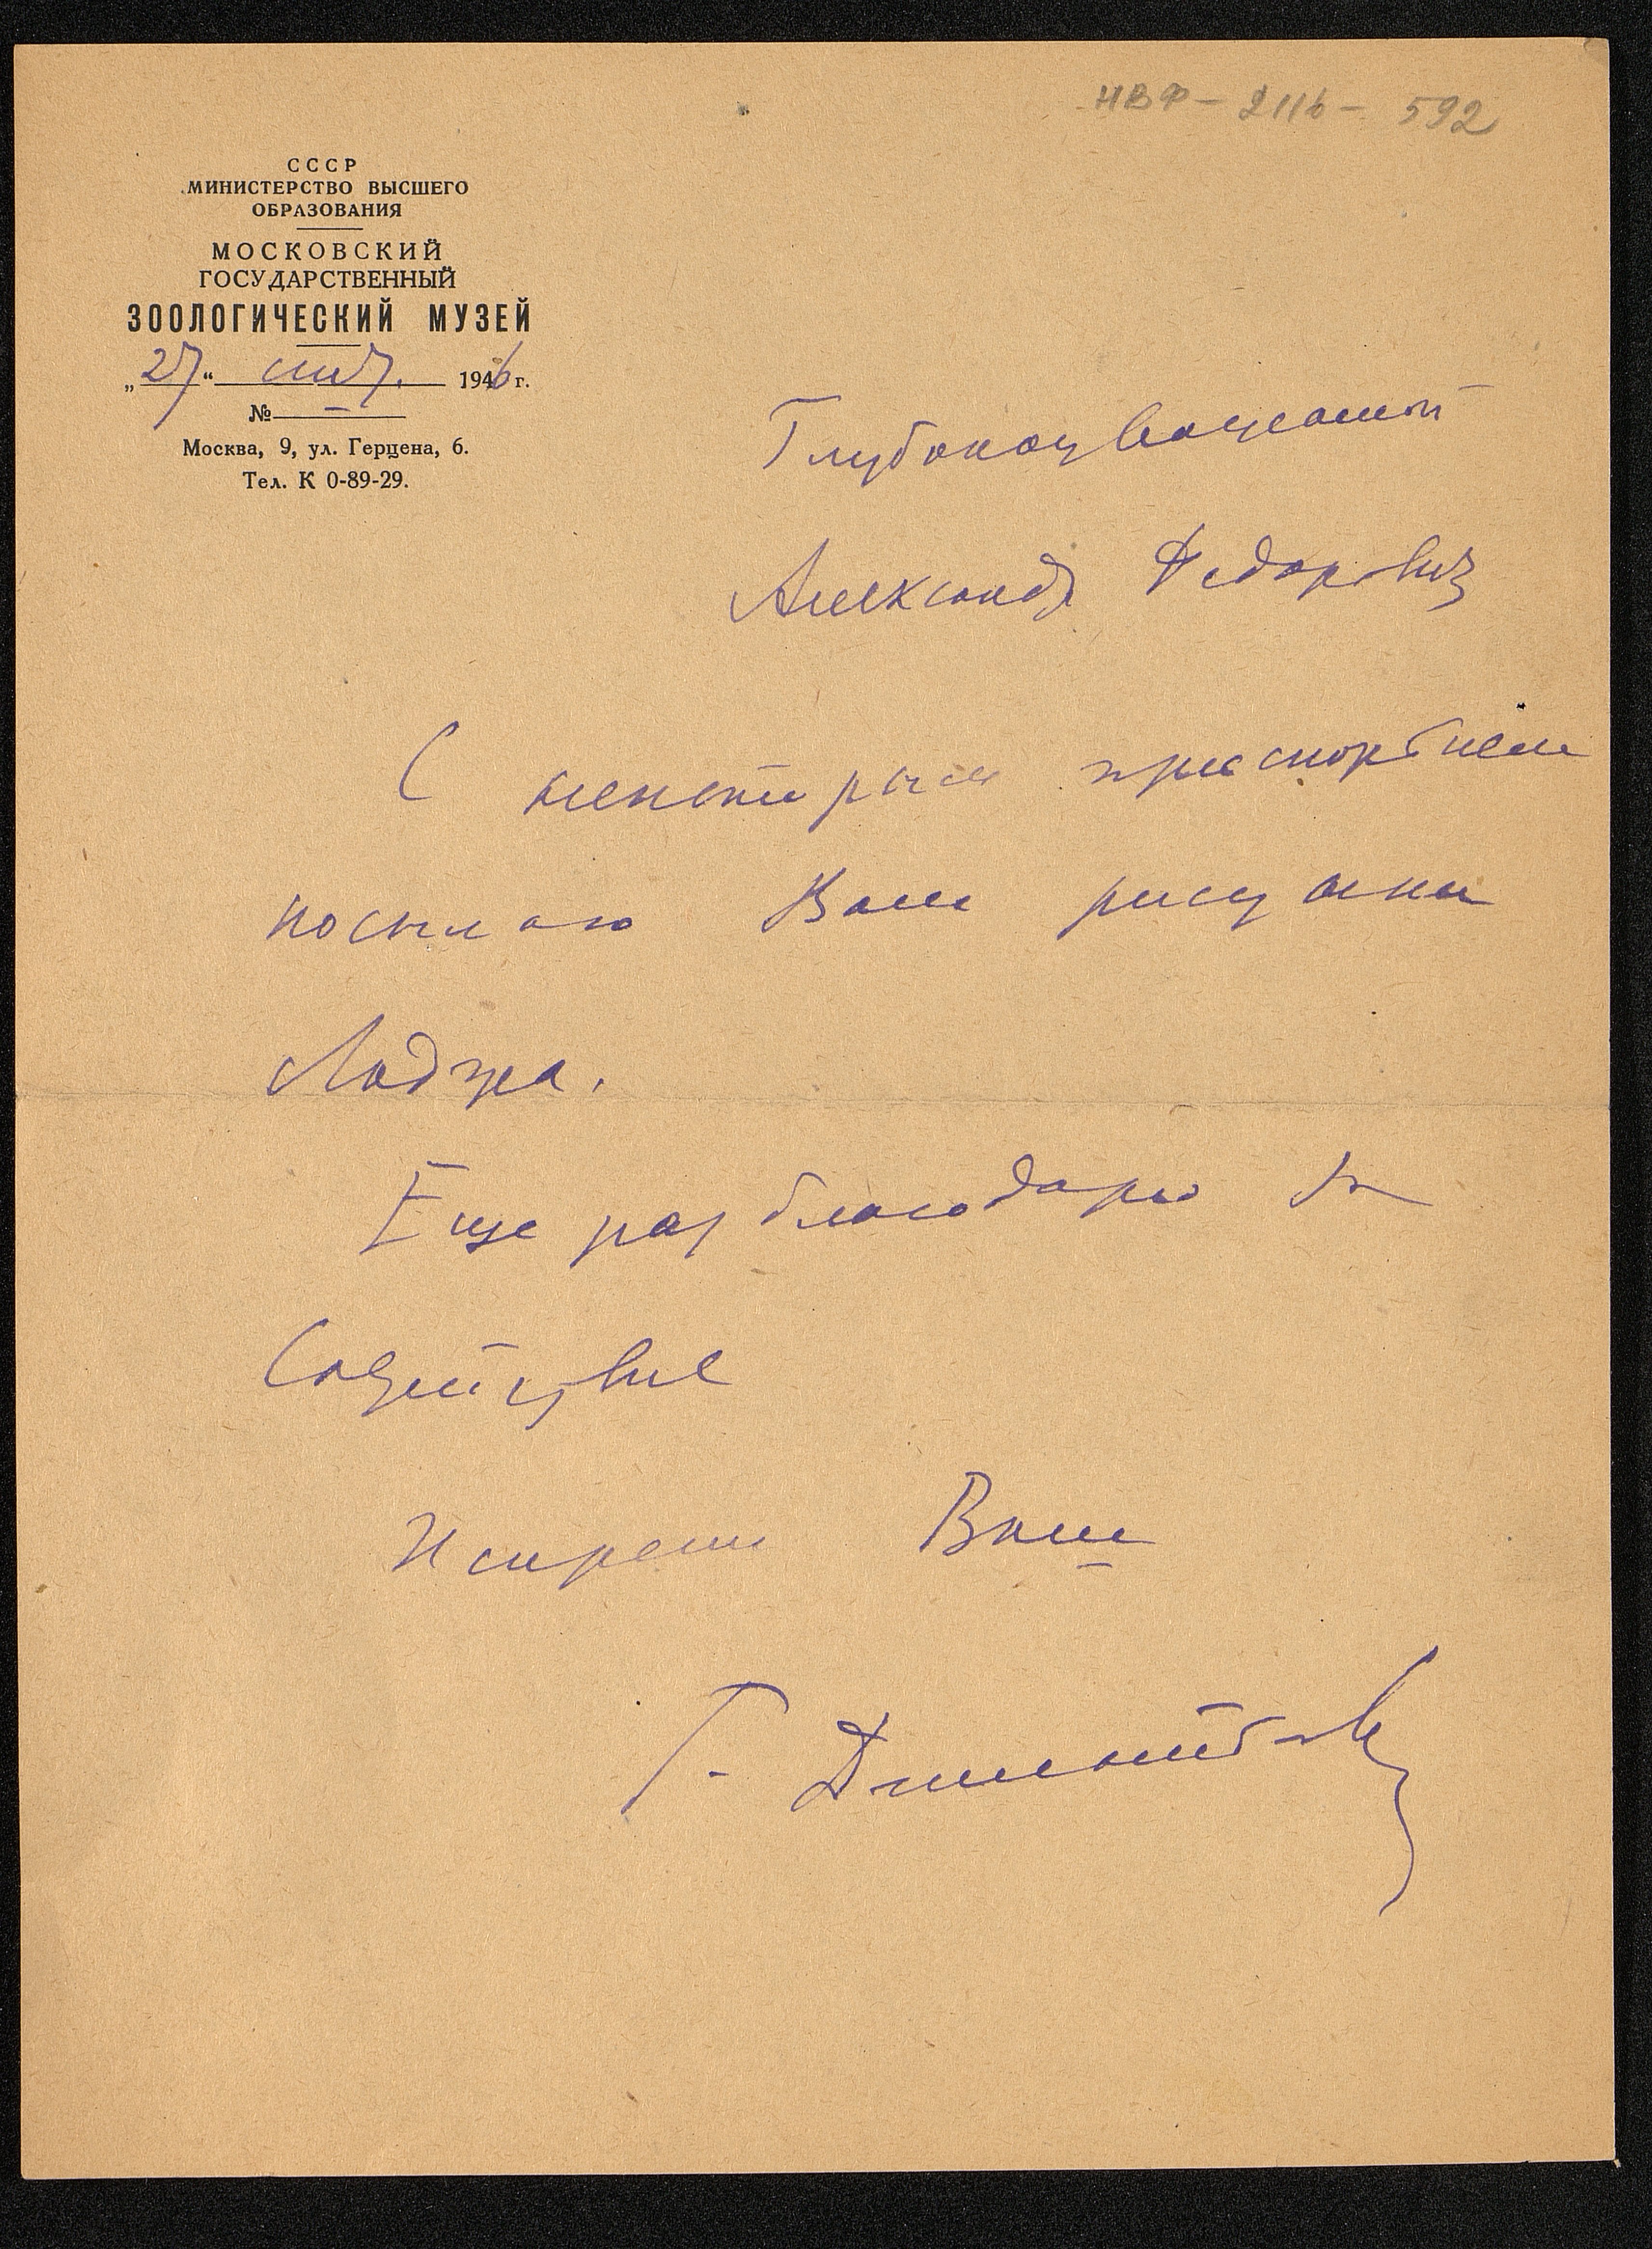 НВФ – 2116 – 592
СССР
МИНИСТЕРСТВО ВЫСШЕГО
ОБРАЗОВАНИЯ
МОСКОВСКИЙ
ГОСУДАРСТВЕННЫЙ
ЗООЛОГИЧЕСКИЙ МУЗЕЙ
„27“ 1946 г.
№ –
Москва, 9, ул. Герцена, 6.
Тел. К 0-89-29.
Глубокоуважаемый
Александр Федорович
С некоторым прискорбием
посылаю Вам рисунки
Лоджа.
Еще раз благодарю за
Содействие
Искренне Ваш
Г. Дементьев